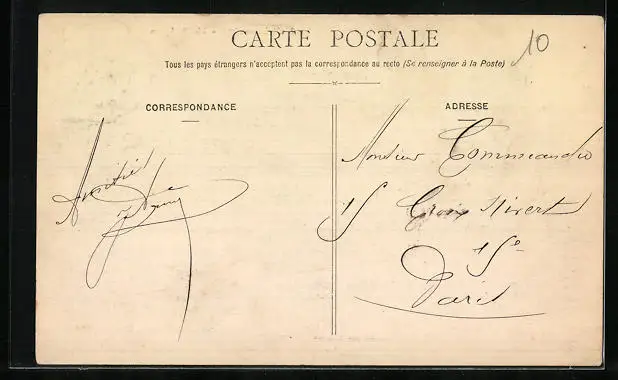 CARTE POSTALE
10
Tous les pays étrangers n'acceptent pas la correspondance au recto (Se renseigner à la Poste)
CORRESPONDANCE
Amitié
ADRESSE
Monsieur
15 Croix Nivert
15e
Paris